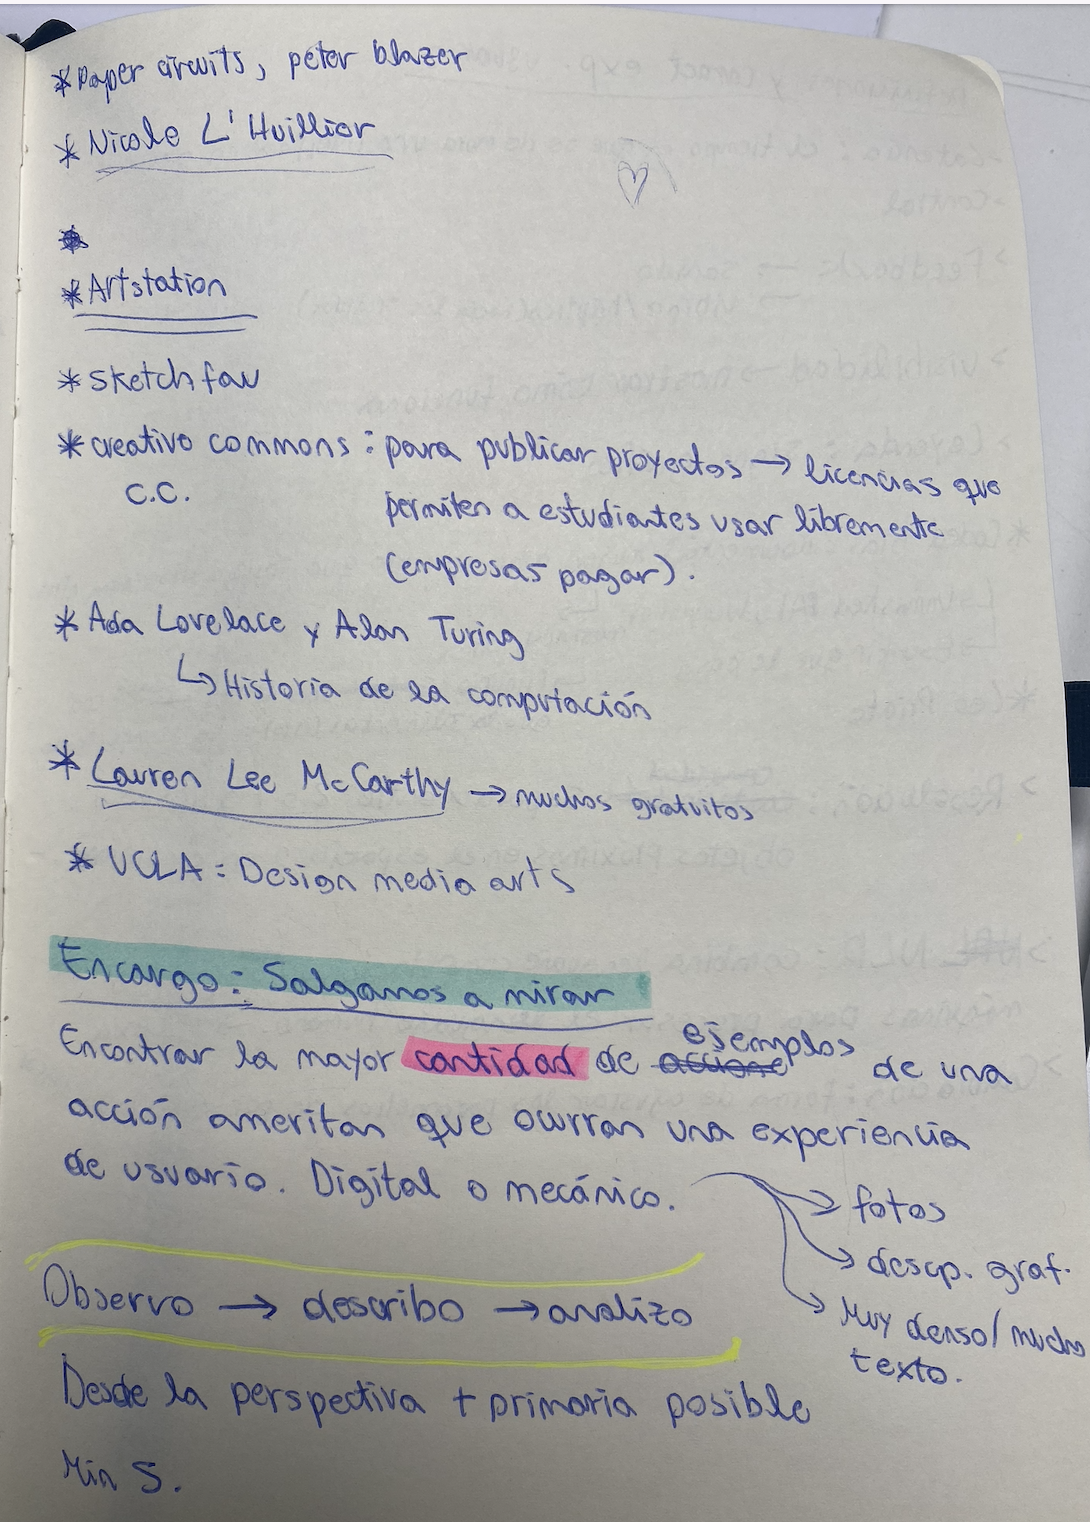 * Paper circuits, peter blazer
* Nicole L'Huillier
* Artstation
* sketch fau
* creative commons : para publicar proyectos → licencias que
C.C. permiten a estudiantes usar libremente
(empresas pagar).
* Ada Lovelace y Alan Turing
↳ Historia de la computación
* Lauren Lee McCarthy → muchos gratuitos
* UCLA : Design media arts
Encargo: Salgamos a mirar
Encontrar la mayor cantidad de ejemplos de una
acción ameritan que ocurran una experiencia
de usuario. Digital o mecánico.
→ fotos
→ descp. graf.
→ Muy denso/mucho
texto.
Observo → describo → analizo
Desde la perspectiva + primaria posible
Min 5.